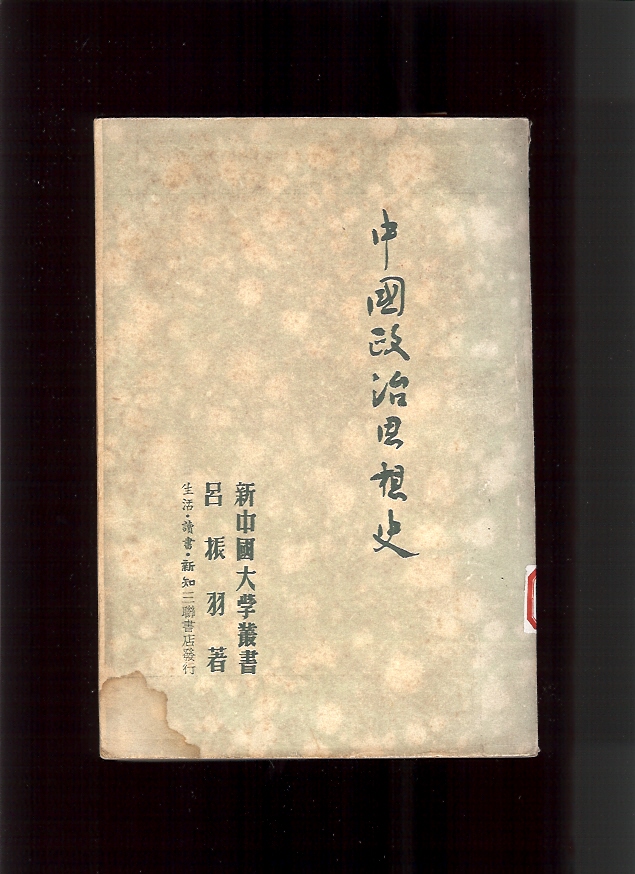 中國政治思想史
新中國大学叢書
呂振羽著
生活·讀書·新知三聯書店發行